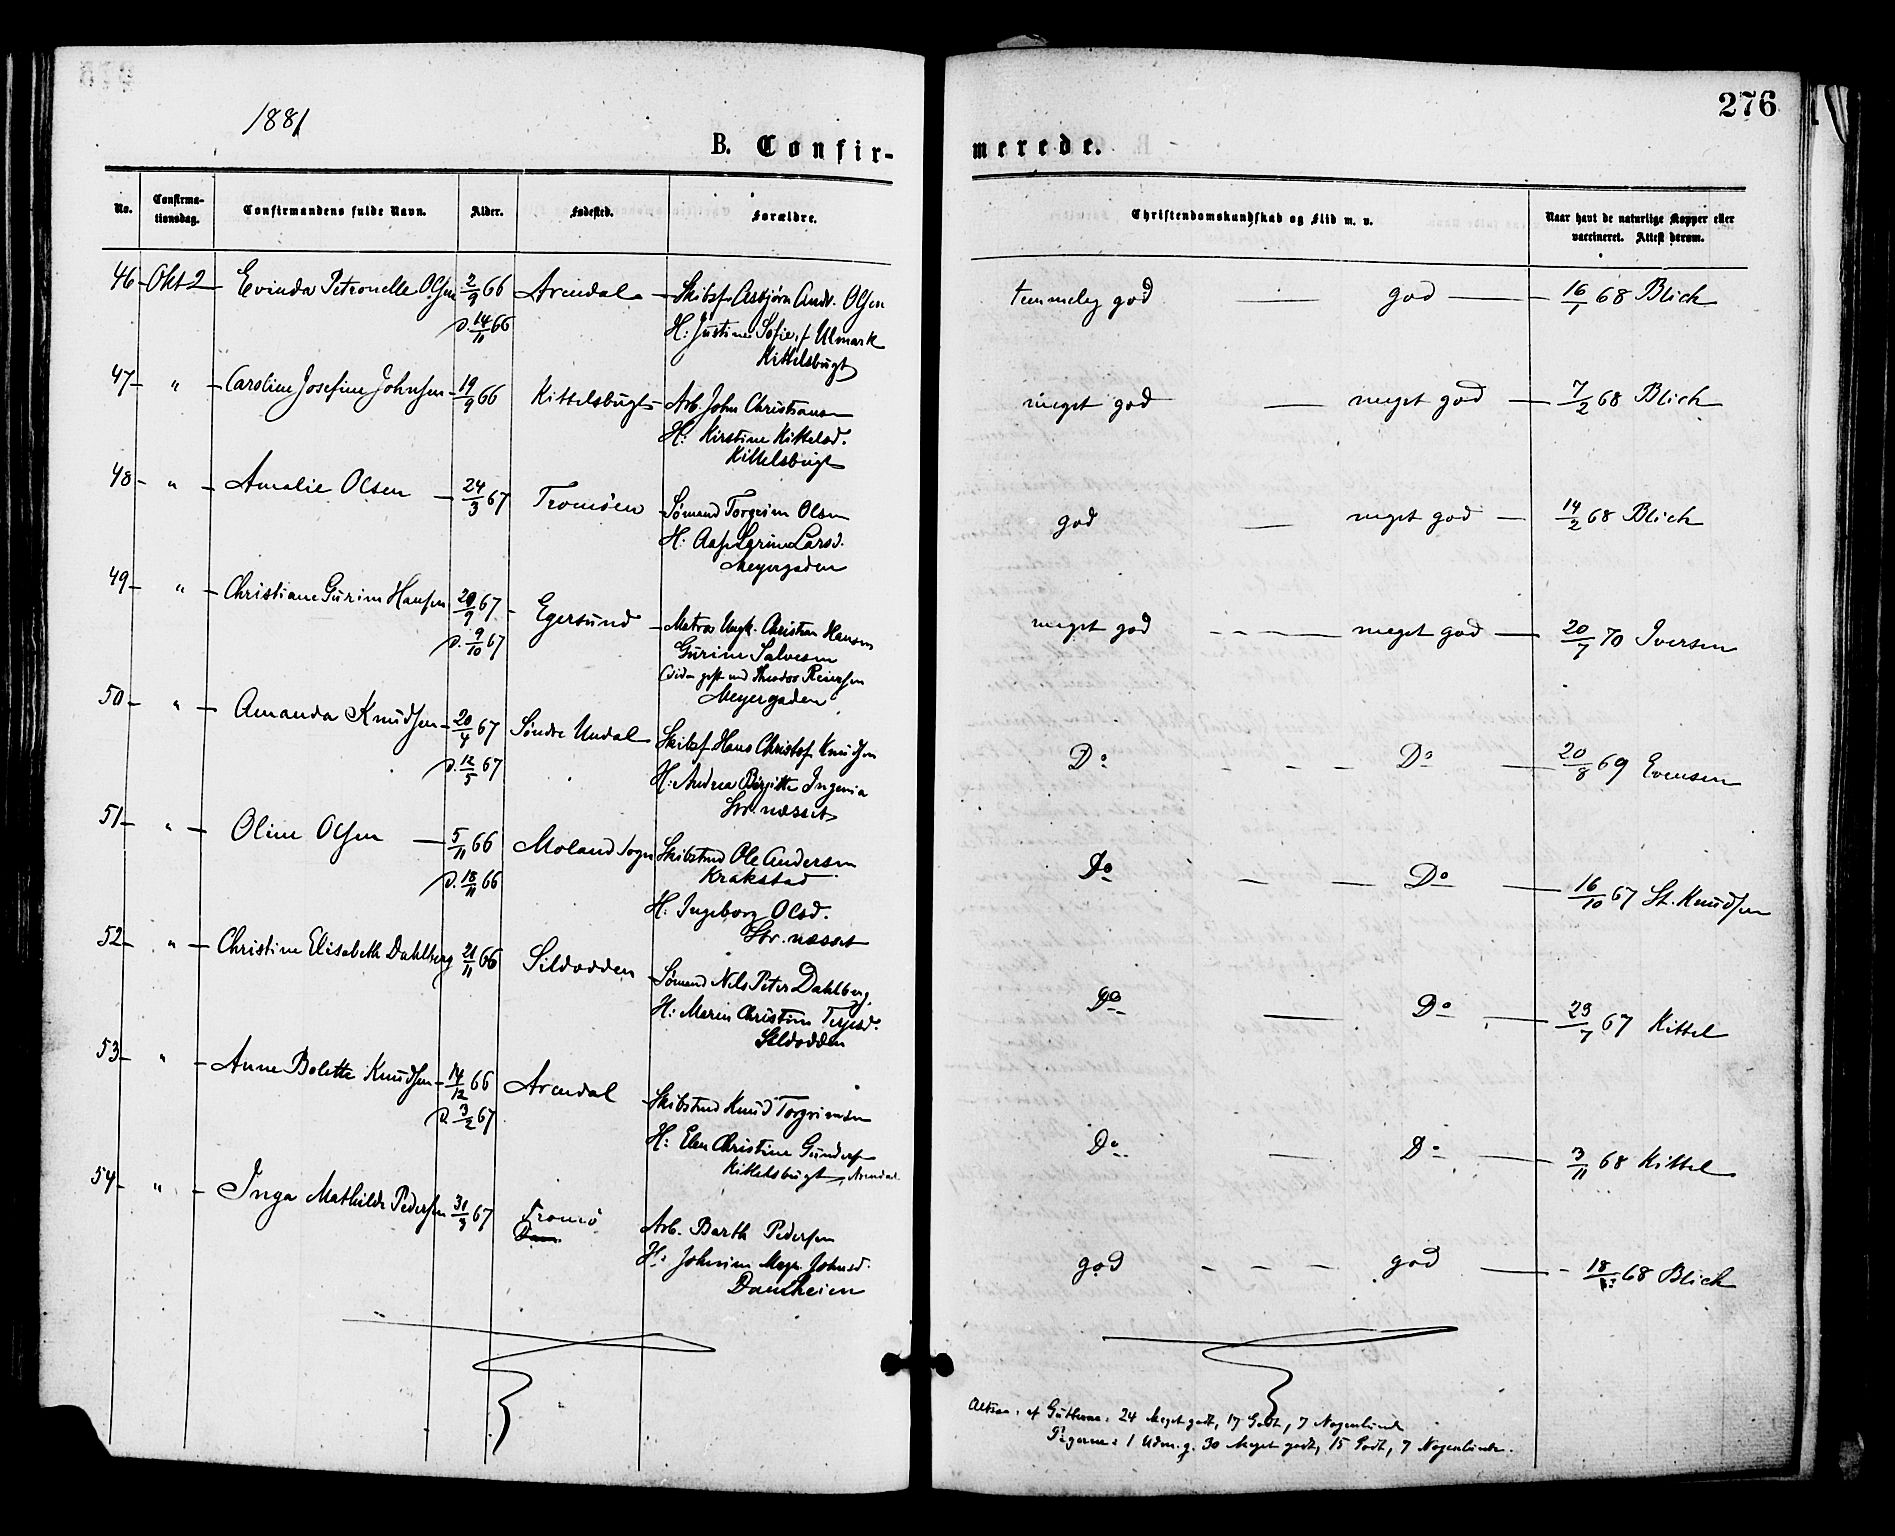 276
1881
B. Confirmerede.
No. Confirmationsdag. Confirmandens fulde Navn. Alder. Fødested. Forældre. Christendomskundskab og Flid m. v. Naar havt de naturlige Kopper eller vaccineret. Attest derom.
46 Okt 2 Evinda Petronelle Olsen 2/9 66 Arendal Skibsf. Asbjørn Andr. Olsen temmelig god — god — 16/1 68 Blich
d. 14/11 66 H: Justine Sofie f. Ulmark
Kittelsbugt
47 " Caroline Josefine Johnsen 19/9 66 Kittelsbugt Arb. John Christiansen meget god — meget god — 7/2 68 Blich
H: Kirstine Kittelsd.
Kittelsbugt
48 " Amalie Olsen 24/3 67 Tromøen Sømand Torgrim Olsen god — meget god — 14/2 68 Blich
H: Larsd.
Meyergaden
49 " Christiane Gurine Hansen 20/9 67 Egersund Matros Ungk. Christian Hansen meget god — meget god — 20/7 70 Iversen
d. 9/10 67 Gurine Salvesen
(siden gift med Theodor Reiersen
Meyergaden
50 " Amanda Knudsen 20/4 67 Søndre Undal Skibsf. Hans Christof. Knudsen Do — Do — 20/8 69 Evensen
d. 12/5 67 H: Andrea Birgitte Ingenia
Str. næsset
51 " Oline Olsen 5/11 66 Moland Sogn Skibstmd Ole Andersen Do — Do — 16/10 67 St. Knudsen
d. 18/11 66 Krakstad
H: Ingeborg Olsd.
Str. næsset
52 " Christine Elisabeth Dahlberg 21/11 66 Sildodden Sømand Nils Peter Dahlberg Do — Do — 29/7 67 Kittel
H: Maren Christine Terjesd.
Sildodden
53 " Anne Bolette Knudsen 14/12 66 Arendal Skibstmd Knud Torgrimsen Do — Do — 3/11 68 Kittel
d. 3/2 67 H: Elen Christine Gunders
Kittelsbugt, Arendal
54 " Inga Mathilde Pedersen 31/3 67 Tromø Arb. Barth Pedersen god — god — 18/ 68 Blich
H: Johnsd.
Dancheien
Altsaa: af Gutterne: 24 Meget godt, 17 Godt, 7 Nogenlunde
Pigerne: 1 Udm. g. 30 Meget godt, 15 Godt, 7 Nogenlunde.